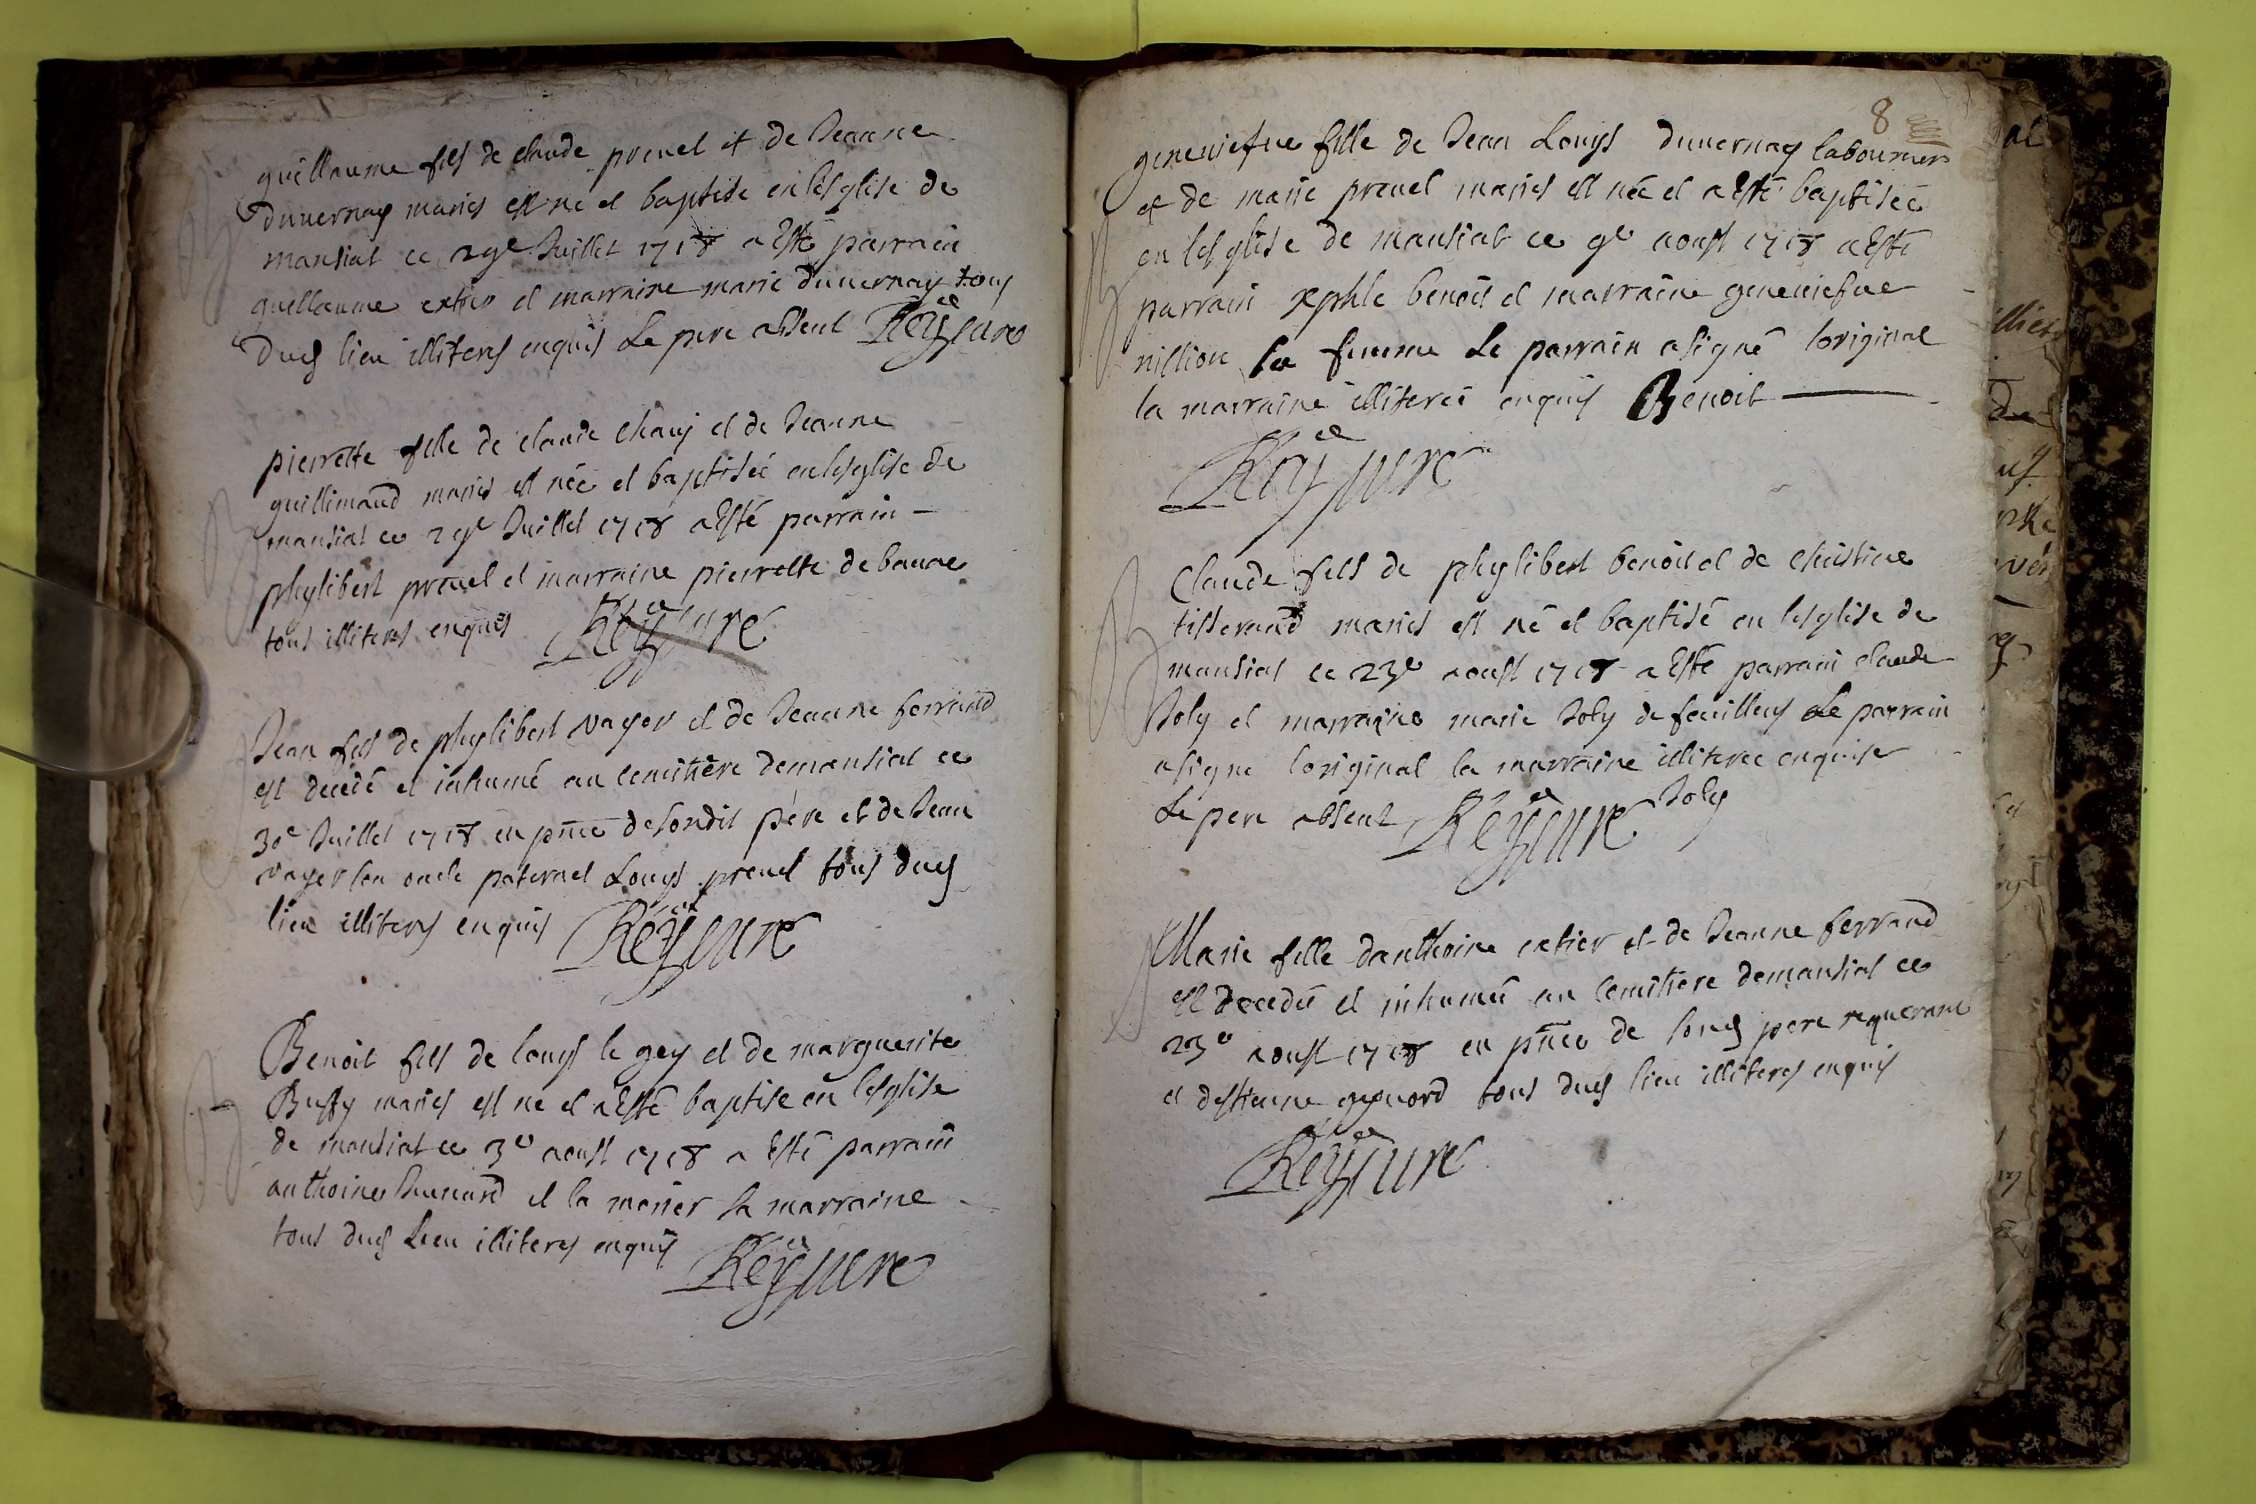 guillaume fils de claude preuel et de Jeanne
duuernay mariés est né et baptisé en lesglise de
mansiat ce 29e Juillet 1718 a Esté parrain
guillaume extier et marraine marie duuernay tous
dud lieu illiteres enquis Le pere absent Reÿ cure
pierrette fille de claude chanÿ et de Jeanne
guillimaud mariés est née et baptisée en lesglise de
mansiat ce 29e Juillet 1718 a Esté parrain
phylibert preuel et marraine pierrette de banne
tous illiteres enquis Reÿ cure
Jean fils de phylibert vayer et de Jeanne ferrand
est décédé et inhumé au cemitière de mansiat ce
30e Juillet 1718 en pnce de sondit père et de Jean
vayer son oncle paternel Louys preuel tous dud
lieu illiteres enquis Reÿ cure
Benoit fils de louys le gey et de marguerite
Buffy mariés est né et a Esté baptisé en lesglise
de mansiat ce 3e aoust 1718 a Esté parrain
anthoine et la marraine
tous dud Lieu illiteres enquis Reÿ cure
8
geneuiefue fille de Jean Louys duuernay laboureur
et de marie preuel mariés est née et a Esté baptisée
en lesglise de mansiat ce 9e aoust 1718 a Esté
parrain benoit et marraine geneuiefue
million sa femme Le parrain a signé loriginal
la marraine illiterée enquis Benoit
Reÿ cure
Claude fils de phylibert benoit et de christine
tisserand mariés est né et baptisé en lesglise de
mansiat ce 23e aoust 1718 a Esté parrain claude
Joly et marraine marie Joly de feuilleus Le parrain
a signé loriginal la marraine illiterée enquise
Le pere absent Reÿ cure Joly
Marie fille danthoine extier et de Jeanne ferrand
est decedée et inhumée au cemitiere de mansiat ce
23e aoust 1718 en pnce de sond pere requerant
et destienne tous dud lieu illiteres enquis
Reÿ cure